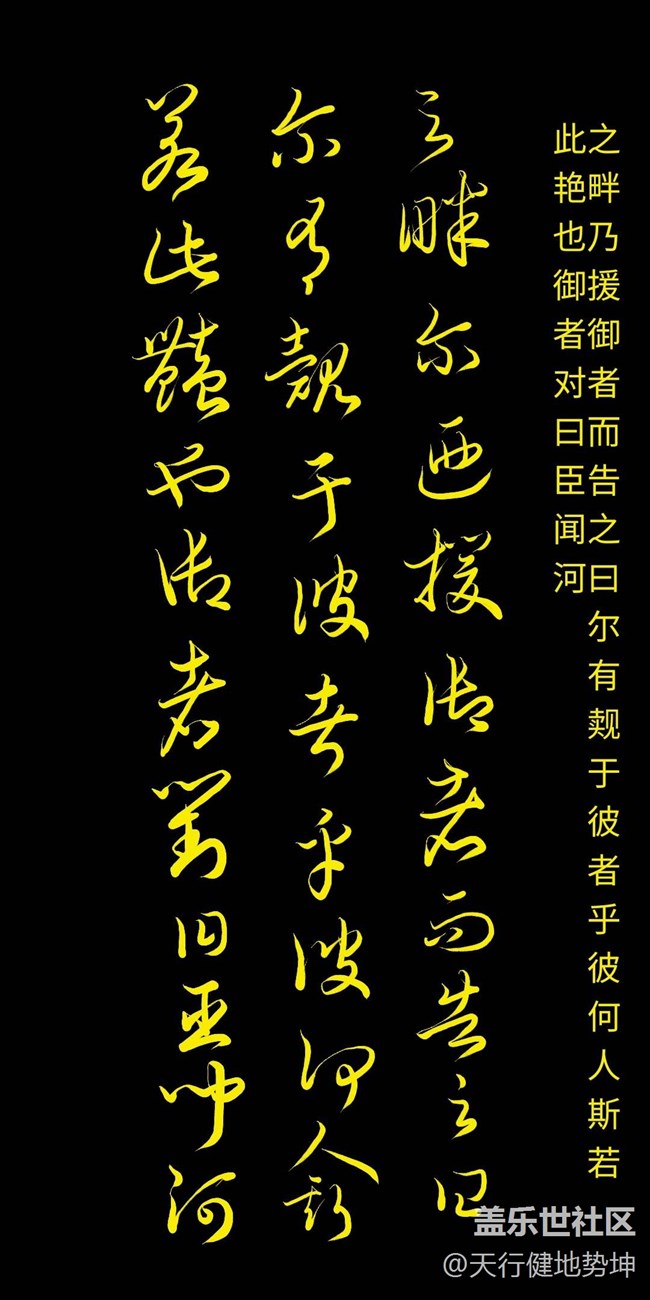 之畔乃援御者而告之曰尔有觌于彼者乎彼何人斯若
此艳也御者对曰臣闻河
之畔尔迺援御者而告之曰
尔有覿于彼者乎彼何人斯
若此豔也御者對曰臣聞河
盖乐世社区
@天行健地势坤